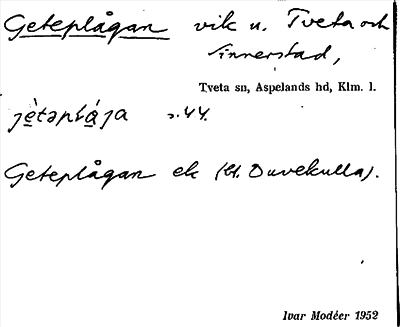 Geteplågan vik u. Tveta och
Innerstad,
Tveta sn, Aspelands hd, Klm. l.
s. 44.
Geteplågan ek (kl. Duvekulla).
Ivar Modéer 1952